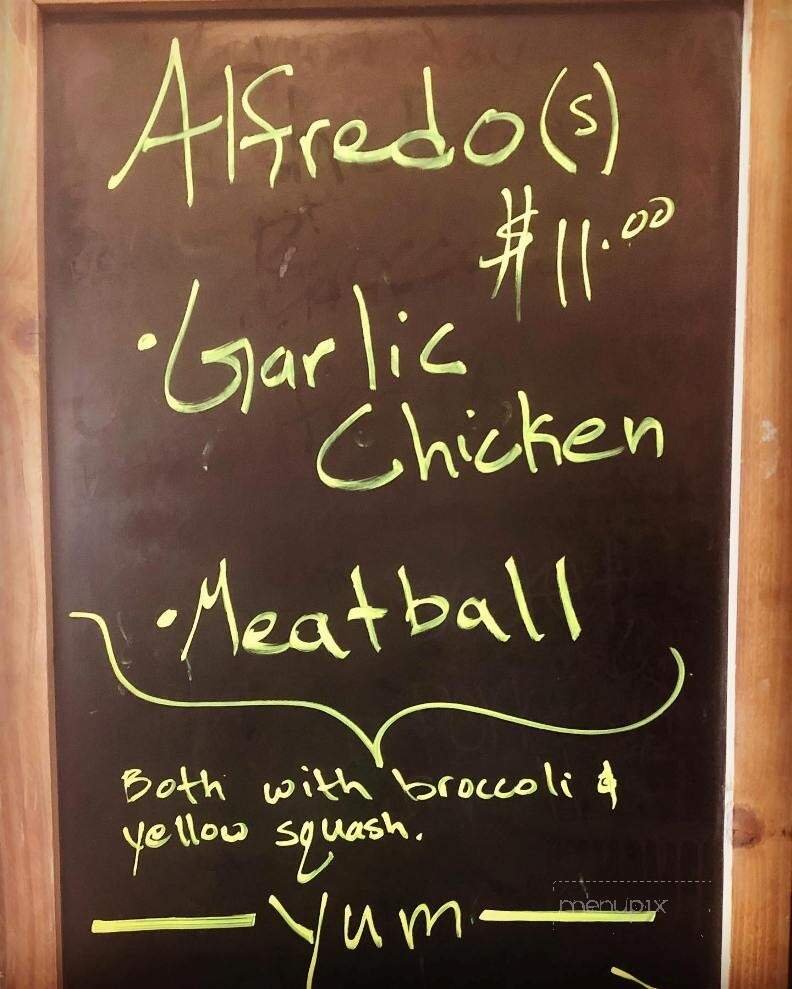 Alfredo(s)
$11.00
•Garlic
Chicken
•Meatball
Both with broccoli &
yellow squash.
Yum
menupix